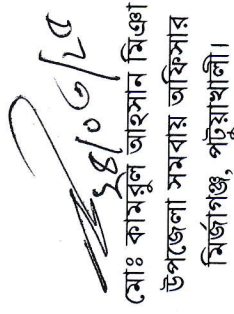 ২৪/০৩/২৫
মোঃ কামরুল আহসান মিঞা
উপজেলা সমবায় অফিসার
মির্জাগঞ্জ, পটুয়াখালী।